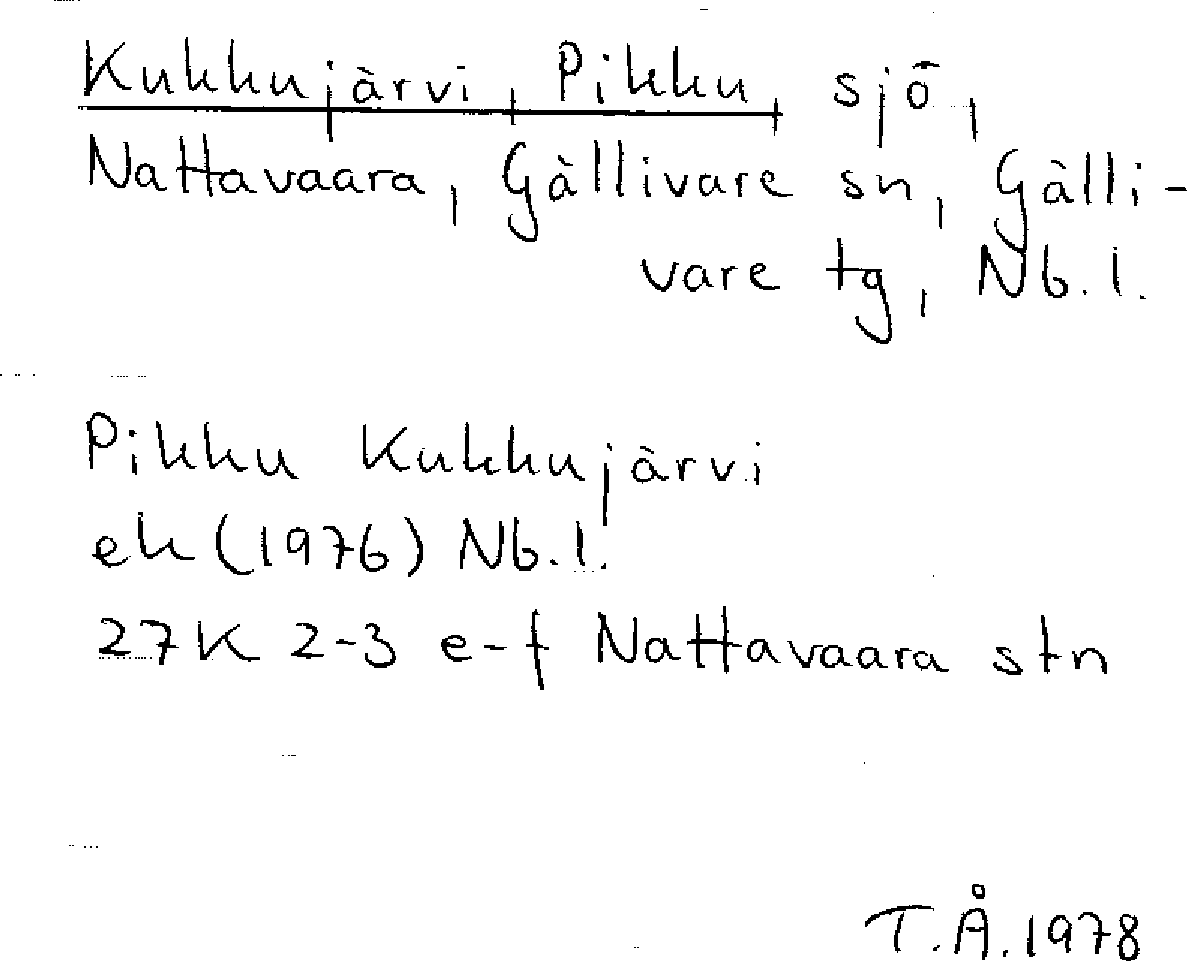 Kukkujärvi, Pikku, sjö,
Nattavaara, Gällivare sn, Gälli-
vare tg, Nb.l.
Pikku Kukkujärvi
ek (1976) Nb.l.
27K 2-3 e-f Nattavaara stn
T.Å.1978